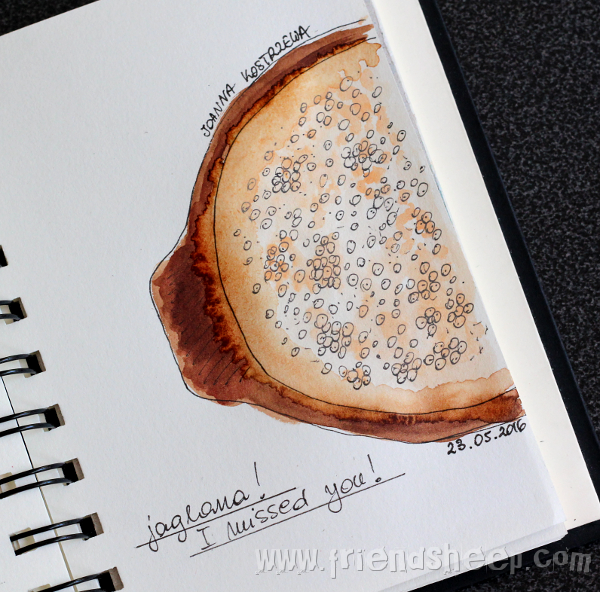 JOANNA KOSTRZEWA
23.05.2016
jaglana!
I missed you!
www.friendsheep.com